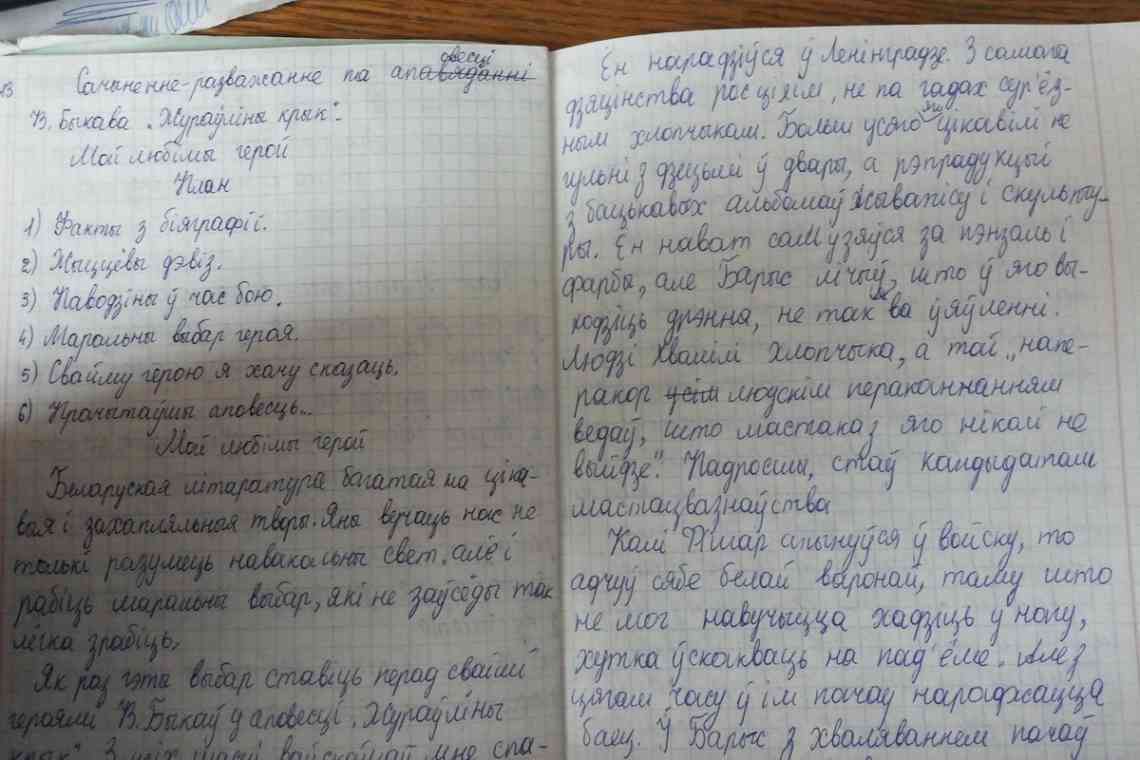 13
Сачыненне-разважанне па апавяданні двесці
В. Быкава „Жураўліны крык“:
Мой любімы герой
План
1) Факты з біяграфіі.
2) Жыццёвы дэвіз.
3) Паводзіны ў час бою.
4) Маральны выбар героя.
5) Свайму герою я хачу сказаць.
6) Прачытаўшы аповесць...
Мой любімы герой
Беларуская літаратура багатая на ціка-
выя і захапляльныя творы. Яны вучаць нас не
толькі разумець навакольны свет, але і
рабіць маральны выбар, які не заўсёды так
лёгка зрабіць.
Як раз гэты выбар ставіць перад сваімі
героямі В. Быкаў у аповесці „Жураўліны
крык“. З усіх шасці вайскоўцаў мне спа-
Ён нарадзіўся ў Ленінградзе. З самага
дзяцінства рос ціхім, не па гадах сур'ёз-
ным хлопчыкам. Больш усяго яго цікавілі не
гульні з дзецьмі ў двары, а рэпрадукцыі
з бацькавых альбомаў жывапісу і скульпту-
ры. Ён нават сам узяўся за пэнзаль і
фарбы, але Барыс лічыў, што ў яго вы-
ходзіць дрэнна, не так як ва ўяўленні.
Людзі хвалілі хлопчыка, а той „напе-
ракор усім людскім перакананням
ведаў, што мастака з яго ніколі не
выйдзе“. Падросшы, стаў кандыдатам
мастацвазнаўства
Калі Фішар апынуўся ў войску, то
адчуў сябе белай варонай, таму што
не мог навучыцца хадзіць у ногу,
хутка ўскокваць на пад'ёме. Але з
цягам часу ў ім пачаў нараджацца
баец. Ў Барыс з хваляваннем пачаў